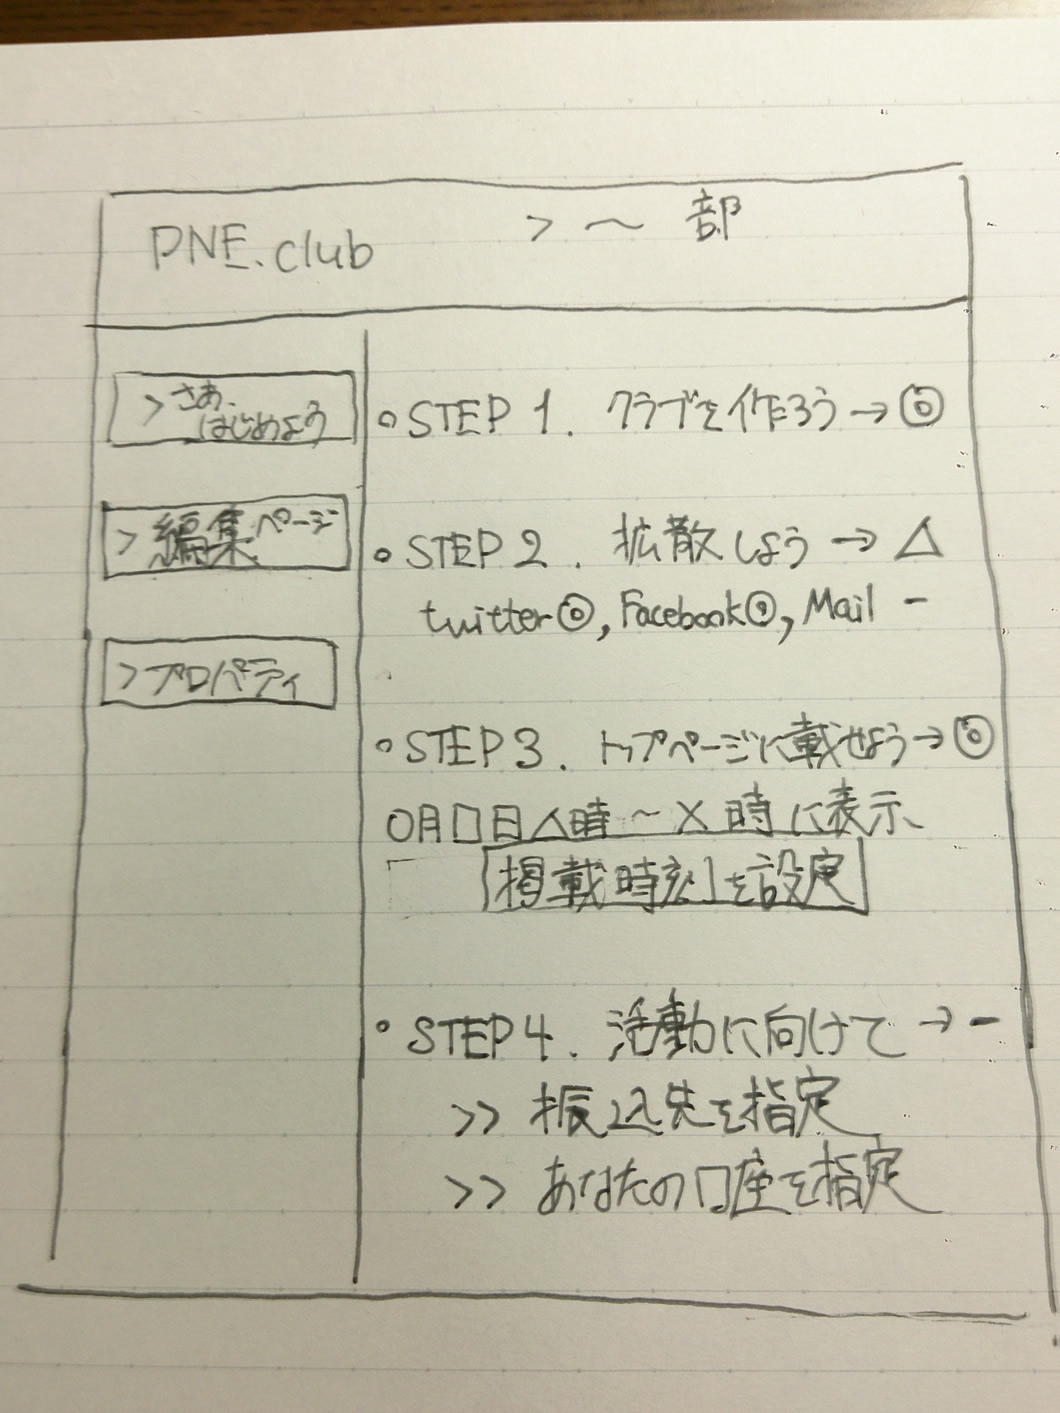 PNE.club > ～ 部
> さあ、
はじめよう
> 編集ページ
> プロパティ
○ STEP 1. クラブを作ろう → ◎
○ STEP 2. 拡散しよう → △
twitter◎, Facebook◎, Mail −
○ STEP 3. トップページに載せよう → ◎
○月□日△時～×時に表示
「掲載時刻」を設定
○ STEP 4. 活動に向けて → −
>> 振込先を指定
>> あなたの口座を指定